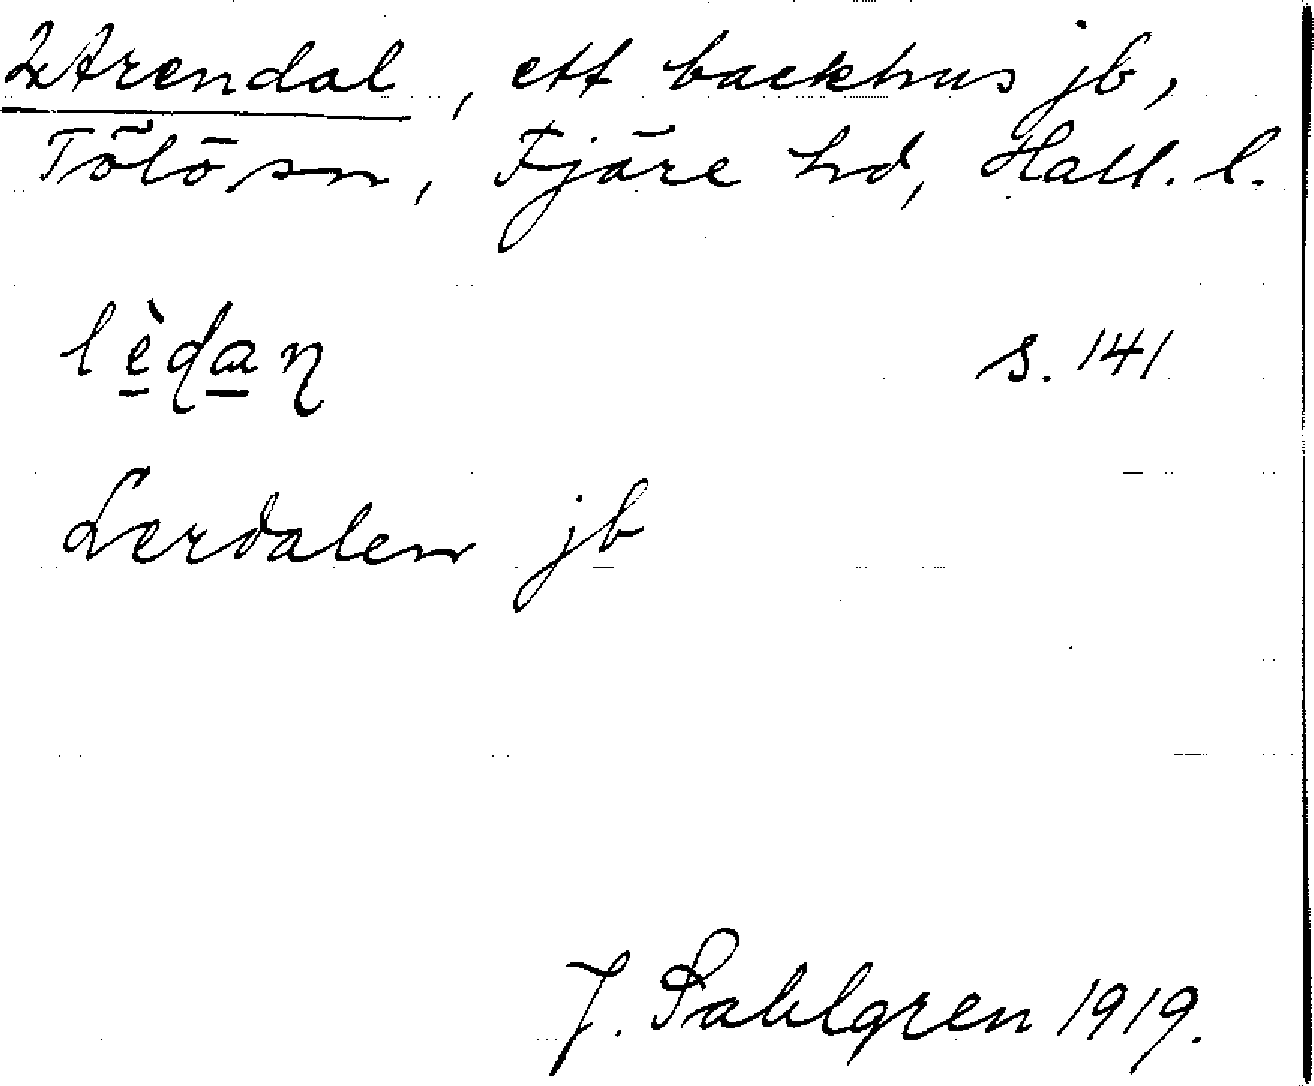 2 Arendal, ett backhus jb,
Tölö sn, Fjäre hd, Hall. l.
lèdan s. 141
Lerdalen jb
J. Sahlgren 1919.